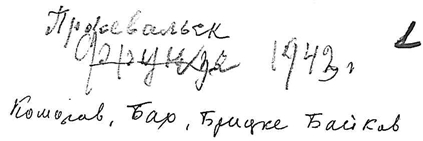 Пржевальск
Фрунзе 1942 г
Комогав, Бар, Брицке Байков